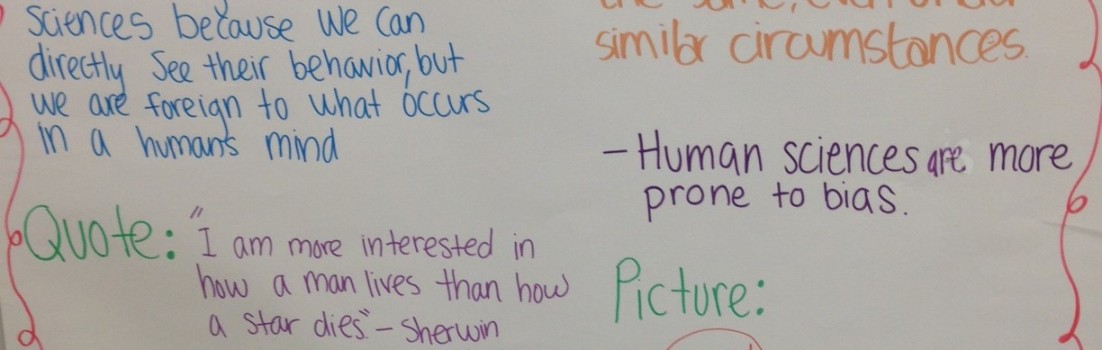 Sciences because we can
directly see their behavior, but
we are foreign to what occurs
in a humans mind
Quote: "I am more interested in
how a man lives than how
a star dies." - Sherwin
similar circumstances.
- Human sciences are more
prone to bias.
Picture: